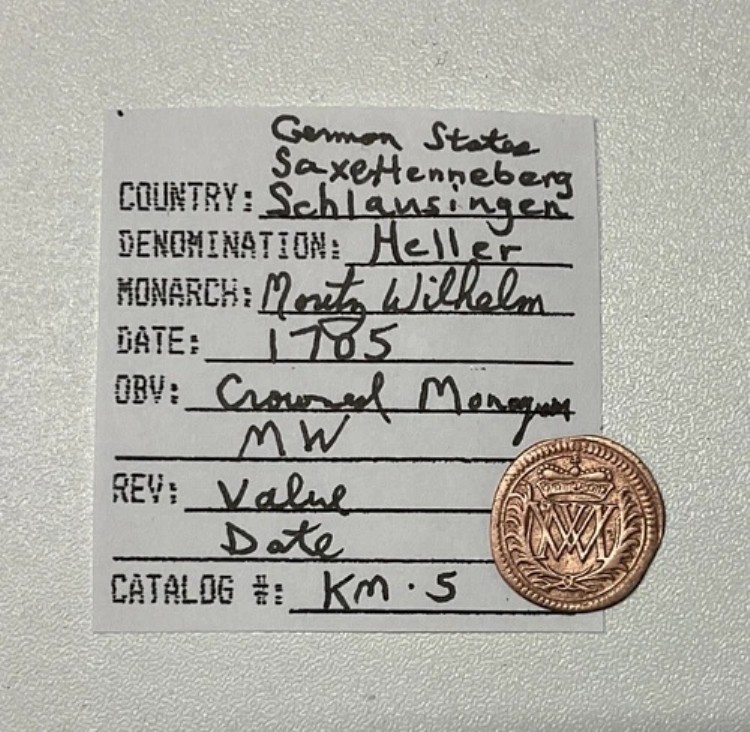 German States
SaxeHenneberg
COUNTRY: Schlausingen
DENOMINATION: Heller
MONARCH: Moritz Wilhelm
DATE: 1785
OBV: Crowned Monogram
MW
REV: Value
Date
CATALOG #: KM·5
MW